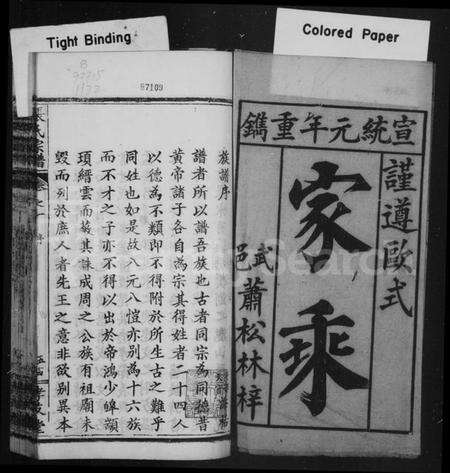 Tight Binding
Colored Paper
57109
宣統元年重鐫
謹遵歐式
家乘
武邑蕭松林梓
族譜序
譜者所以譜吾族也古者同宗為同德昔
黃帝諸子各自為宗其得姓者二十四人
以德為不類即不得附於所生古之難乎
同姓也如是故八元八愷亦別為十六族
而不才之子亦不得以出於帝鴻少皞顓
頊縉雲而蒙其誅成周之公族有祖廟未
毀而列於庶人者先王之意非欲別異本
氏宗譜